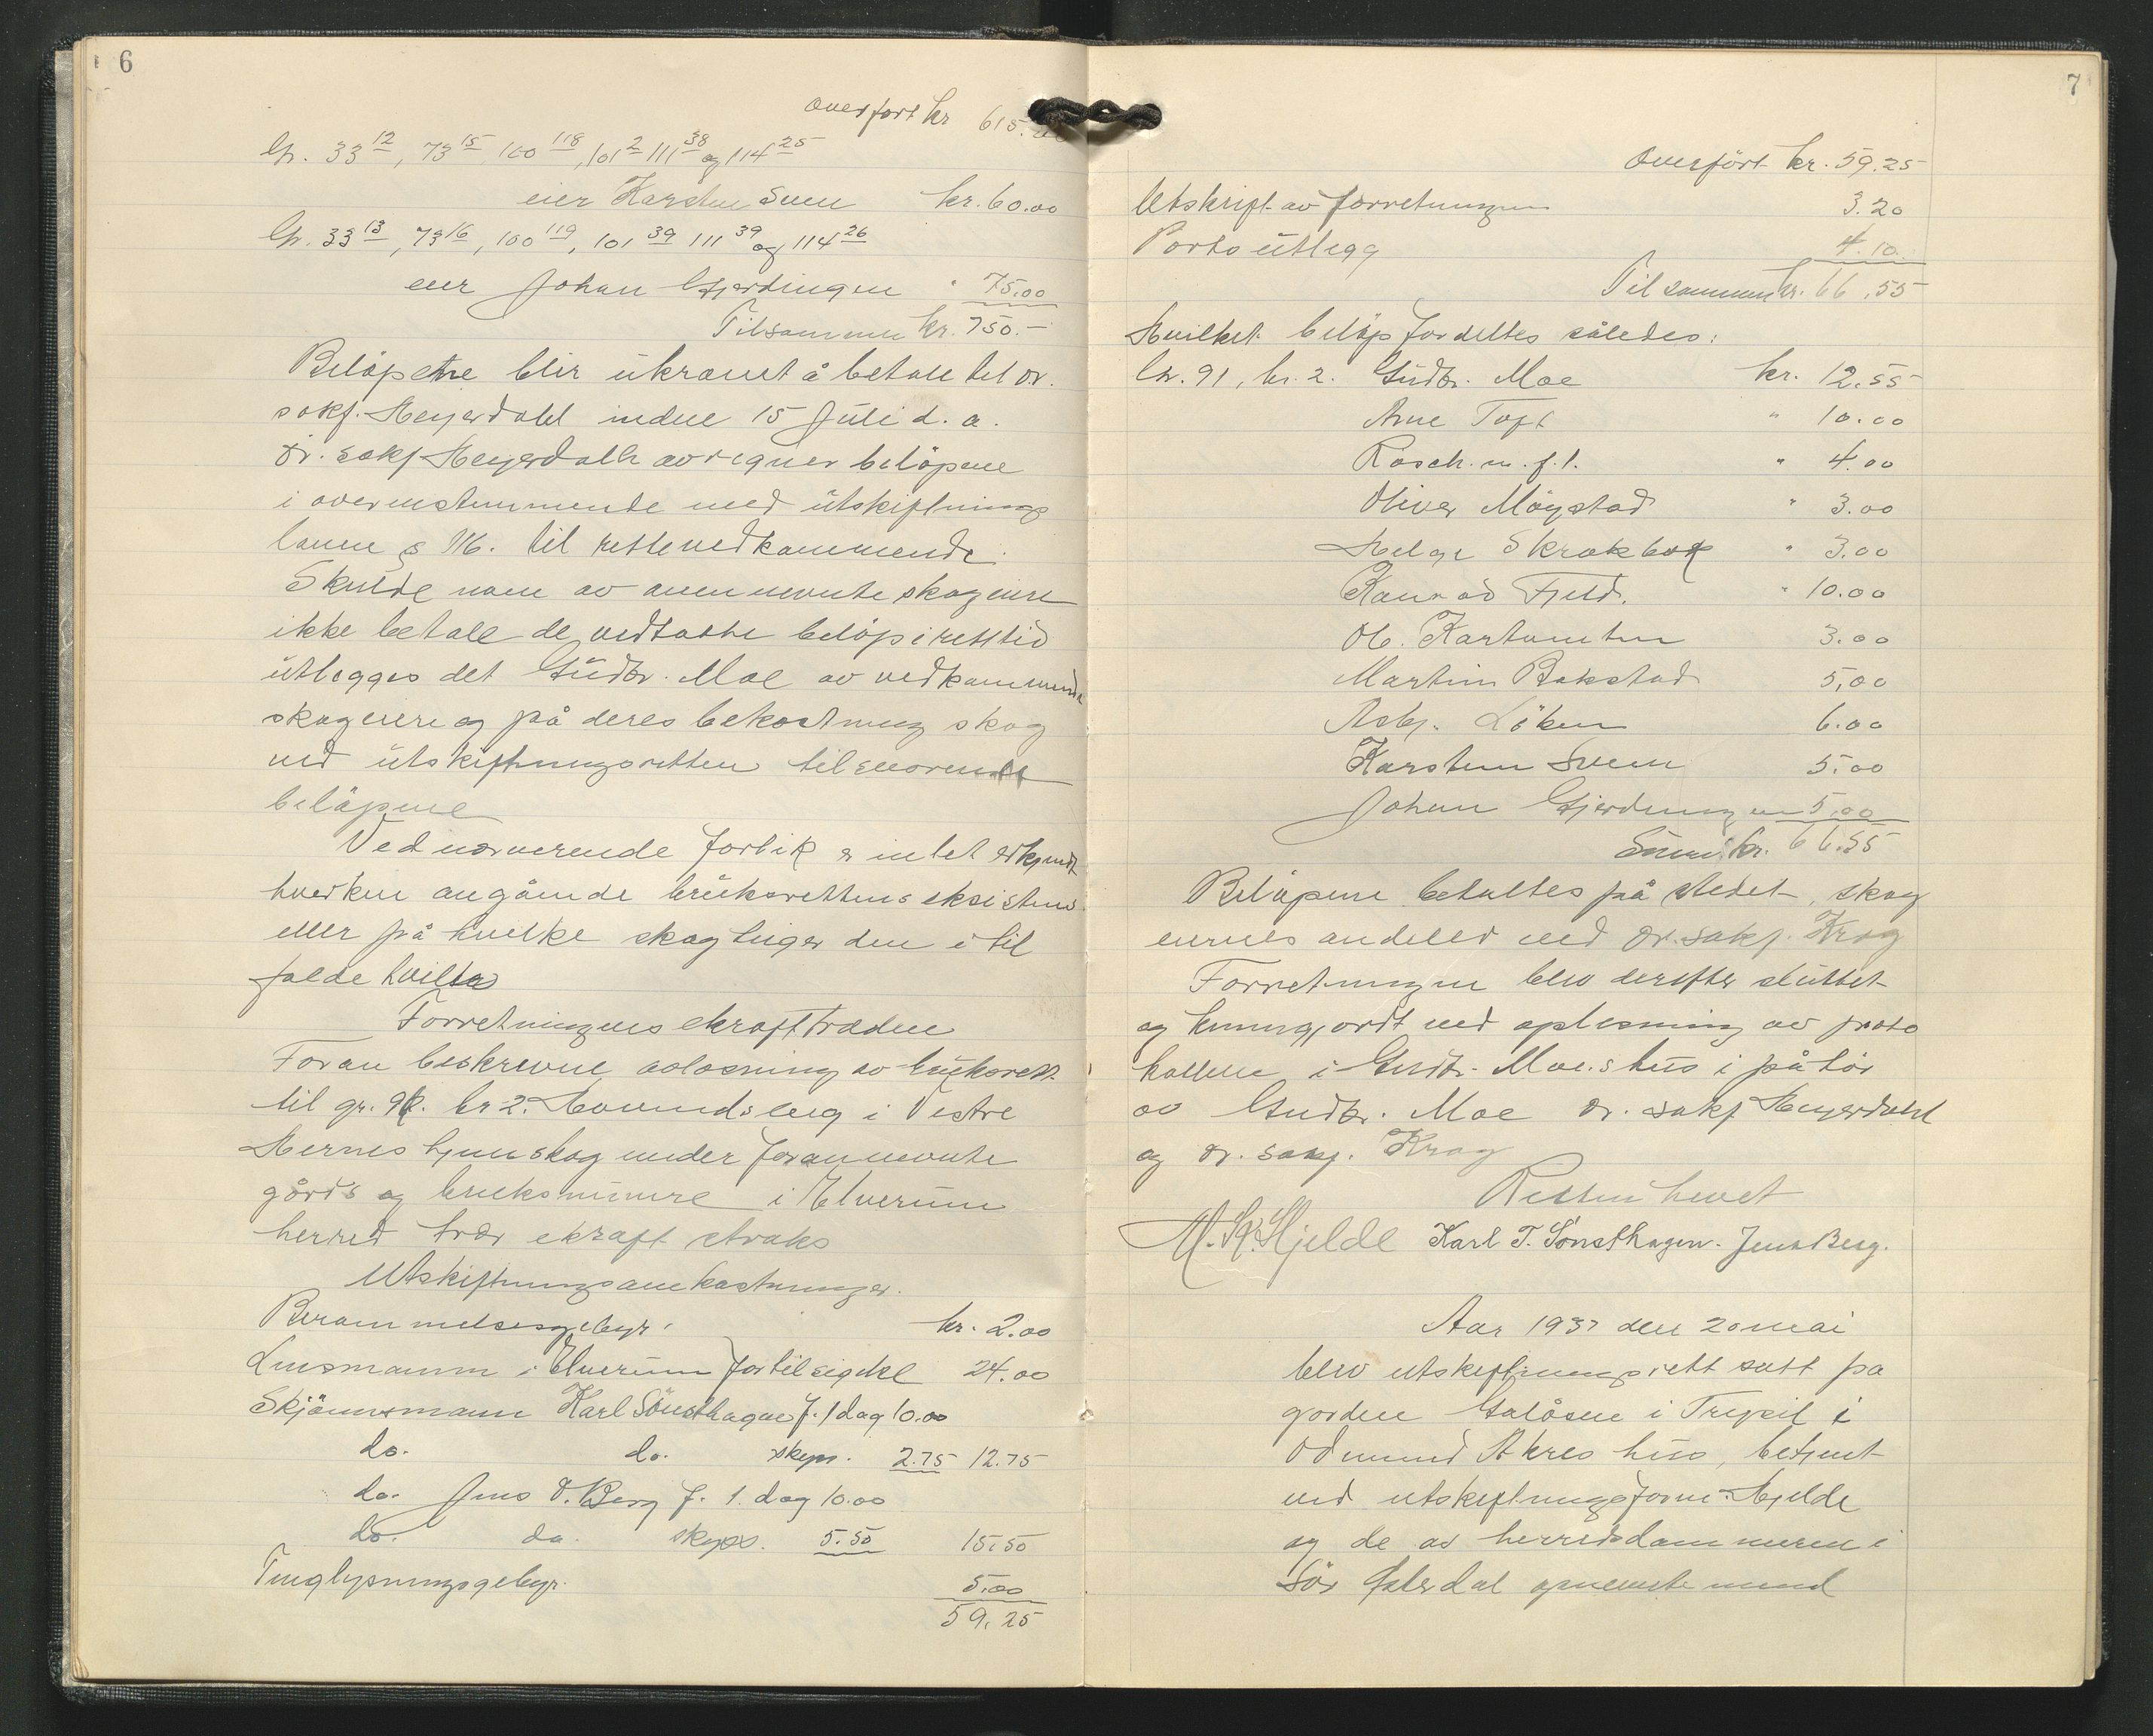 6
overført kr 615.00
Gr. 33 12, 73 15 100 118, 101 2 111 38 og 114 25
eier Karsten Sveen kr. 60.00
Gr. 33 13, 73 16, 100 119, 101 39 111 39 og 114 26
eier Johan Gjerdingen " 75.00
Tilsammen kr. 750.-
Beløpene blir ukrævet å betale til or.
sakf. Heyerdahl inden 15 Juli d. a.
Or. sakf Heyerdalh avregner beløpene
i overenstemmende med utskiftnings
loven § 116. til rettevedkommende.
Skulde noen av ovennevnte skogeiere
ikke betale de vedtatte beløp i rettid
utlegges det Gudbr. Moe av vedkommende
skogeiere og på deres bekostning skog
ved utskiftningsretten tilsvarende
beløpene
Ved nærværende forlik er intet erkjendt
hverken angående bruksrettens eksistens
eller på hvilke skogteiger den i til
falde hviler
Forretningens ekrafttræden
Foran beskrevne avløsning av bruksrett
til gr. 91. br 2. i Vestre
Hernes hjemskog under forannevnte
gårds og bruksnumre i Elverum
herred trær ekraft straks
Utskiftningsomkostninger.
Berammelsesgebyr. kr. 2.00
Lensmannen i Elverum for tilsigelse 24.00
Skjønnsmann Karl Sönsthagen f. 1 dag 10.00
do. do. skyss. 2.75 12.75
do. Jens O. Berg f. 1. dag 10.00
do. do. skyss. 5.50 15.50
Tinglysningsgebyr. 5.00
59.25
7
Overført kr. 59.25
Utskrift av forretningen 3.20
Porto utlegg 4.10
Tilsammen kr. 66.55
Hvilket beløp fordeltes således:
Gr. 91, br. 2. Gudbr. Moe kr. 12.55
Arne Toft " 10.00
Rosch. m. fl. " 4.00
Oliver Möystad " 3.00
Helge Skrakbak " 3.00
Konrad Fjeld. " 10.00
Ol. Kartomten 3.00
Martin Bakstad 5.00
Asbj. Löken 6.00
Karsten Sveen 5.00
Johan Gjerdingen 5.00
Sum kr. 66.55
Beløpene betaltes på stedet, skog
eiernes andeler ved or. sakf. Krog
Forretningen blev derefter sluttet
og kunngjordt ved oplesning av proto
kollen i Gudbr. Moe.s hus i påhör
av Gudbr. Moe or. sakf Heyerdahl
og or. sakf. Krog
Retten hevet
M. K. Hjelde Karl T. Sönsthagen. Jens Berg.
Aar 1937 den 20 mai
blev utskiftningsrett satt på
gården Galåsen i Trysil i
Odmund Akres hus, betjent
ved utskiftningsform. Hjelde
og de av herredsdommeren i
Sör Österdal opnevnte menn